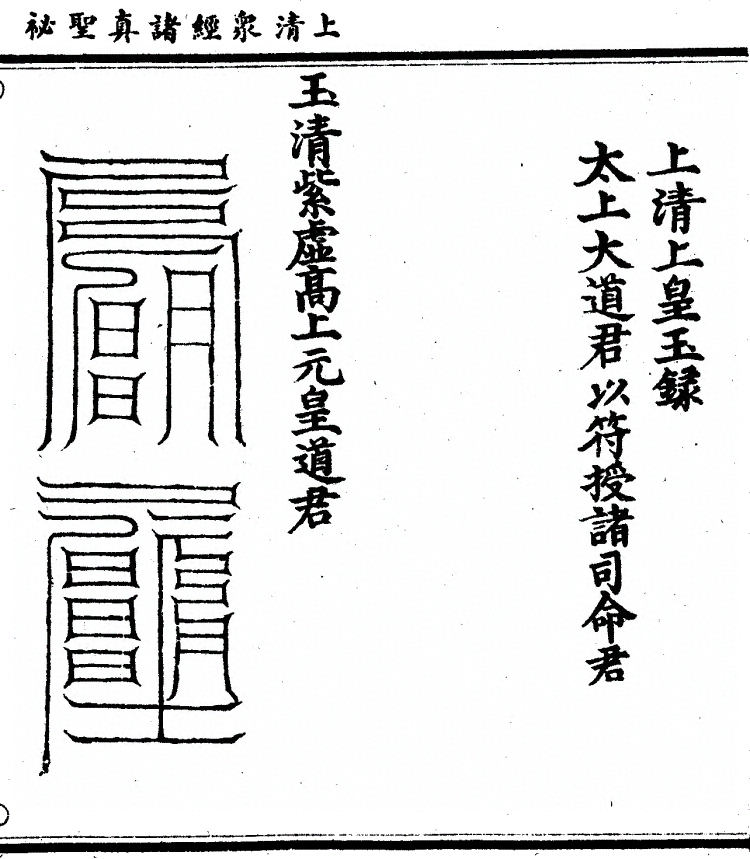 上清衆經諸真聖祕
上清上皇玉録
太上大道君以符授諸司命君
玉清紫虛高上元皇道君